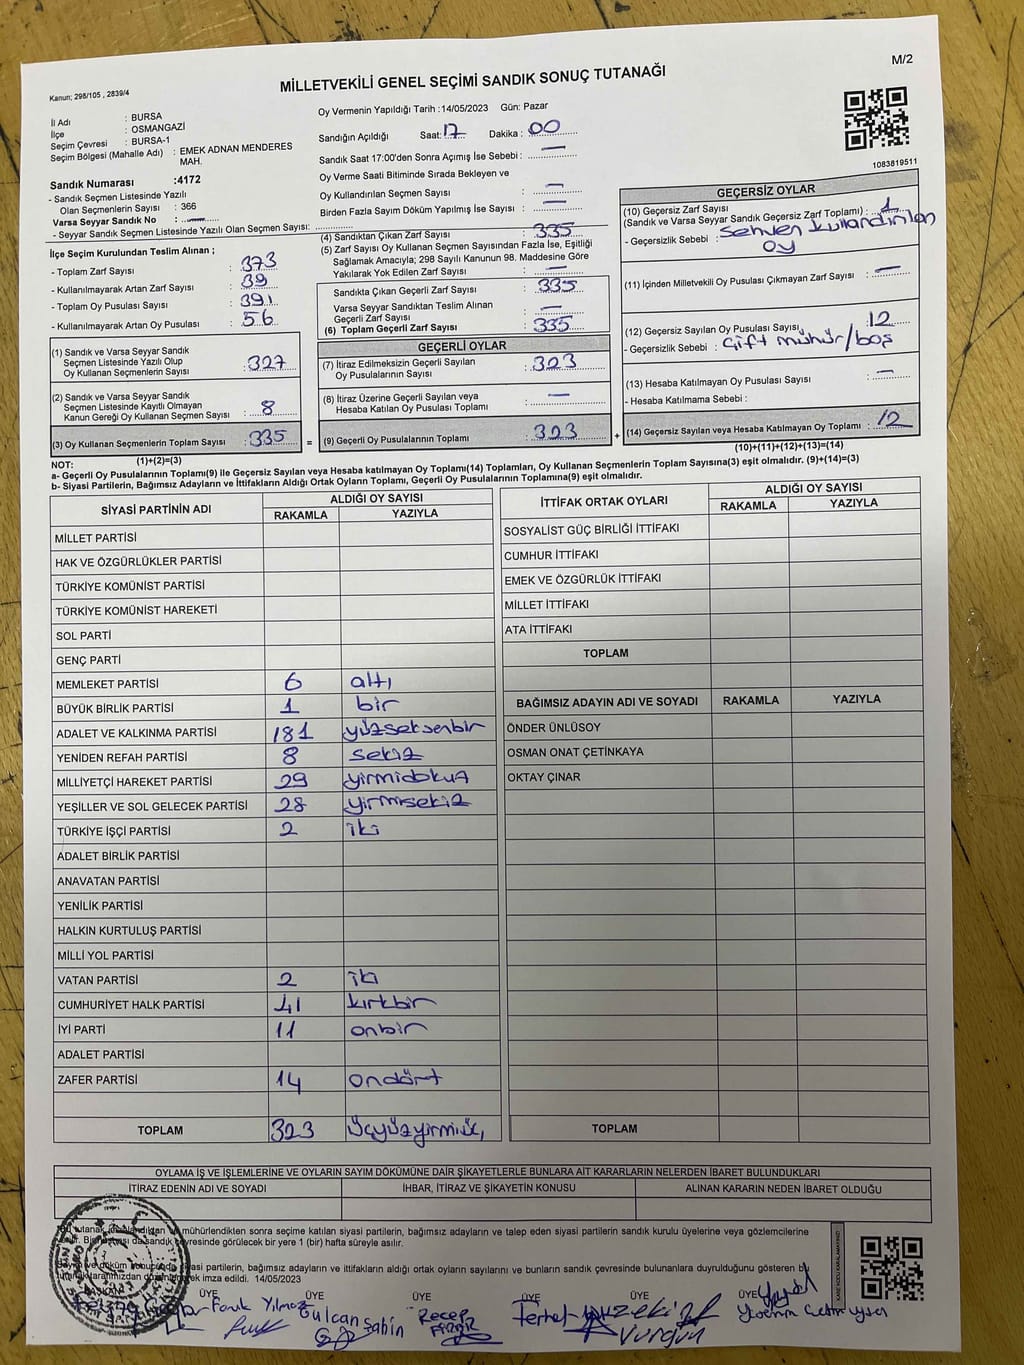 M/2
MİLLETVEKİLİ GENEL SEÇİMİ SANDIK SONUÇ TUTANAĞI
Kanun; 298/105 , 2839/4
İl Adı : BURSA
İlçe : OSMANGAZİ
Seçim Çevresi : BURSA-1
Seçim Bölgesi (Mahalle Adı) : EMEK ADNAN MENDERES
MAH.
Sandık Numarası :4172
- Sandık Seçmen Listesinde Yazılı
Olan Seçmenlerin Sayısı : 366
Varsa Seyyar Sandık No : —
- Seyyar Sandık Seçmen Listesinde Yazılı Olan Seçmen Sayısı:
Oy Vermenin Yapıldığı Tarih :14/05/2023 Gün: Pazar
Sandığın Açıldığı Saat: 17 Dakika : 00
Sandık Saat 17:00'den Sonra Açımış İse Sebebi : —
Oy Verme Saati Bitiminde Sırada Bekleyen ve
Oy Kullandırılan Seçmen Sayısı : —
Birden Fazla Sayım Döküm Yapılmış İse Sayısı : —
1083819511
İlçe Seçim Kurulundan Teslim Alınan ;
- Toplam Zarf Sayısı : 373
- Kullanılmayarak Artan Zarf Sayısı : 39
- Toplam Oy Pusulası Sayısı : 391
- Kullanılmayarak Artan Oy Pusulası : 56
(1) Sandık ve Varsa Seyyar Sandık
Seçmen Listesinde Yazılı Olup
Oy Kullanan Seçmenlerin Sayısı : 327
(2) Sandık ve Varsa Seyyar Sandık
Seçmen Listesinde Kayıtlı Olmayan
Kanun Gereği Oy Kullanan Seçmen Sayısı : 8
(3) Oy Kullanan Seçmenlerin Toplam Sayısı : 335 =
(1)+(2)=(3)
(4) Sandıktan Çıkan Zarf Sayısı : 335
(5) Zarf Sayısı Oy Kullanan Seçmen Sayısından Fazla İse, Eşitliği
Sağlamak Amacıyla; 298 Sayılı Kanunun 98. Maddesine Göre
Yakılarak Yok Edilen Zarf Sayısı : —
Sandıkta Çıkan Geçerli Zarf Sayısı : 335
Varsa Seyyar Sandıktan Teslim Alınan
Geçerli Zarf Sayısı : —
(6) Toplam Geçerli Zarf Sayısı : 335
GEÇERLİ OYLAR
(7) İtiraz Edilmeksizin Geçerli Sayılan
Oy Pusulalarının Sayısı : 323
(8) İtiraz Üzerine Geçerli Sayılan veya
Hesaba Katılan Oy Pusulası Toplamı : —
(9) Geçerli Oy Pusulalarının Toplamı : 323 +
GEÇERSİZ OYLAR
(10) Geçersiz Zarf Sayısı
(Sandık ve Varsa Seyyar Sandık Geçersiz Zarf Toplamı) : 1
- Geçersizlik Sebebi : Sehven kullandırılan
oy
(11) İçinden Milletvekili Oy Pusulası Çıkmayan Zarf Sayısı : —
(12) Geçersiz Sayılan Oy Pusulası Sayısı : 12
- Geçersizlik Sebebi : Çift mühür/boş
(13) Hesaba Katılmayan Oy Pusulası Sayısı : —
- Hesaba Katılmama Sebebi :
(14) Geçersiz Sayılan veya Hesaba Katılmayan Oy Toplamı : 12
(10)+(11)+(12)+(13)=(14)
NOT:
a- Geçerli Oy Pusulalarının Toplamı(9) ile Geçersiz Sayılan veya Hesaba katılmayan Oy Toplamı(14) Toplamları, Oy Kullanan Seçmenlerin Toplam Sayısına(3) eşit olmalıdır. (9)+(14)=(3)
b- Siyasi Partilerin, Bağımsız Adayların ve İttifakların Aldığı Ortak Oyların Toplamı, Geçerli Oy Pusulalarının Toplamına(9) eşit olmalıdır.
SİYASİ PARTİNİN ADI ALDIĞI OY SAYISI
RAKAMLA YAZIYLA
MİLLET PARTİSİ
HAK VE ÖZGÜRLÜKLER PARTİSİ
TÜRKİYE KOMÜNİST PARTİSİ
TÜRKİYE KOMÜNİST HAREKETİ
SOL PARTİ
GENÇ PARTİ
MEMLEKET PARTİSİ 6 altı
BÜYÜK BİRLİK PARTİSİ 1 bir
ADALET VE KALKINMA PARTİSİ 181 yüzseksenbir
YENİDEN REFAH PARTİSİ 8 sekiz
MİLLİYETÇİ HAREKET PARTİSİ 29 yirmidokuz
YEŞİLLER VE SOL GELECEK PARTİSİ 28 yirmisekiz
TÜRKİYE İŞÇİ PARTİSİ 2 iki
ADALET BİRLİK PARTİSİ
ANAVATAN PARTİSİ
YENİLİK PARTİSİ
HALKIN KURTULUŞ PARTİSİ
MİLLİ YOL PARTİSİ
VATAN PARTİSİ 2 iki
CUMHURİYET HALK PARTİSİ 41 kırkbir
İYİ PARTİ 11 onbir
ADALET PARTİSİ
ZAFER PARTİSİ 14 ondört
TOPLAM 323 üçyüzyirmiüç
İTTİFAK ORTAK OYLARI ALDIĞI OY SAYISI
RAKAMLA YAZIYLA
SOSYALİST GÜÇ BİRLİĞİ İTTİFAKI
CUMHUR İTTİFAKI
EMEK VE ÖZGÜRLÜK İTTİFAKI
MİLLET İTTİFAKI
ATA İTTİFAKI
TOPLAM
BAĞIMSIZ ADAYIN ADI VE SOYADI RAKAMLA YAZIYLA
ÖNDER ÜNLÜSOY
OSMAN ONAT ÇETİNKAYA
OKTAY ÇINAR
TOPLAM
OYLAMA İŞ VE İŞLEMLERİNE VE OYLARIN SAYIM DÖKÜMÜNE DAİR ŞİKAYETLERLE BUNLARA AİT KARARLARIN NELERDEN İBARET BULUNDUKLARI
İTİRAZ EDENİN ADI VE SOYADI İHBAR, İTİRAZ VE ŞİKAYETİN KONUSU ALINAN KARARIN NEDEN İBARET OLDUĞU
mühürlendikten sonra seçime katılan siyasi partilerin, bağımsız adayların ve talep eden siyasi partilerin sandık kurulu üyelerine veya gözlemcilerine
çevresinde görülecek bir yere 1 (bir) hafta süreyle asılır.
siyasi partilerin, bağımsız adayların ve ittifakların aldığı ortak oyların sayılarını ve bunların sandık çevresinde bulunanlara duyrulduğunu gösteren bu
imza edildi. 14/05/2023
ÜYE ÜYE ÜYE ÜYE ÜYE ÜYE
Faruk Yılmaz Gülcan Şahin Recep Ferhat Zeki Vurgun Yasemin Çetin Yücel